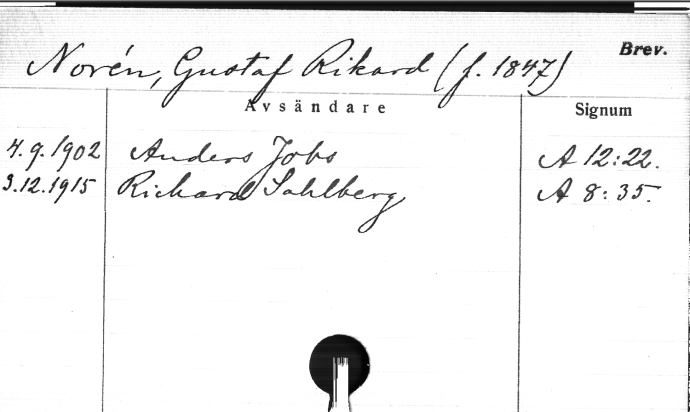 Brev.
Norén, Gustaf Rikard (f. 1847)
Avsändare Signum
4.9.1902 Anders Jobs A 12:22.
3.12.1915 Richard Sahlberg A 8:35.